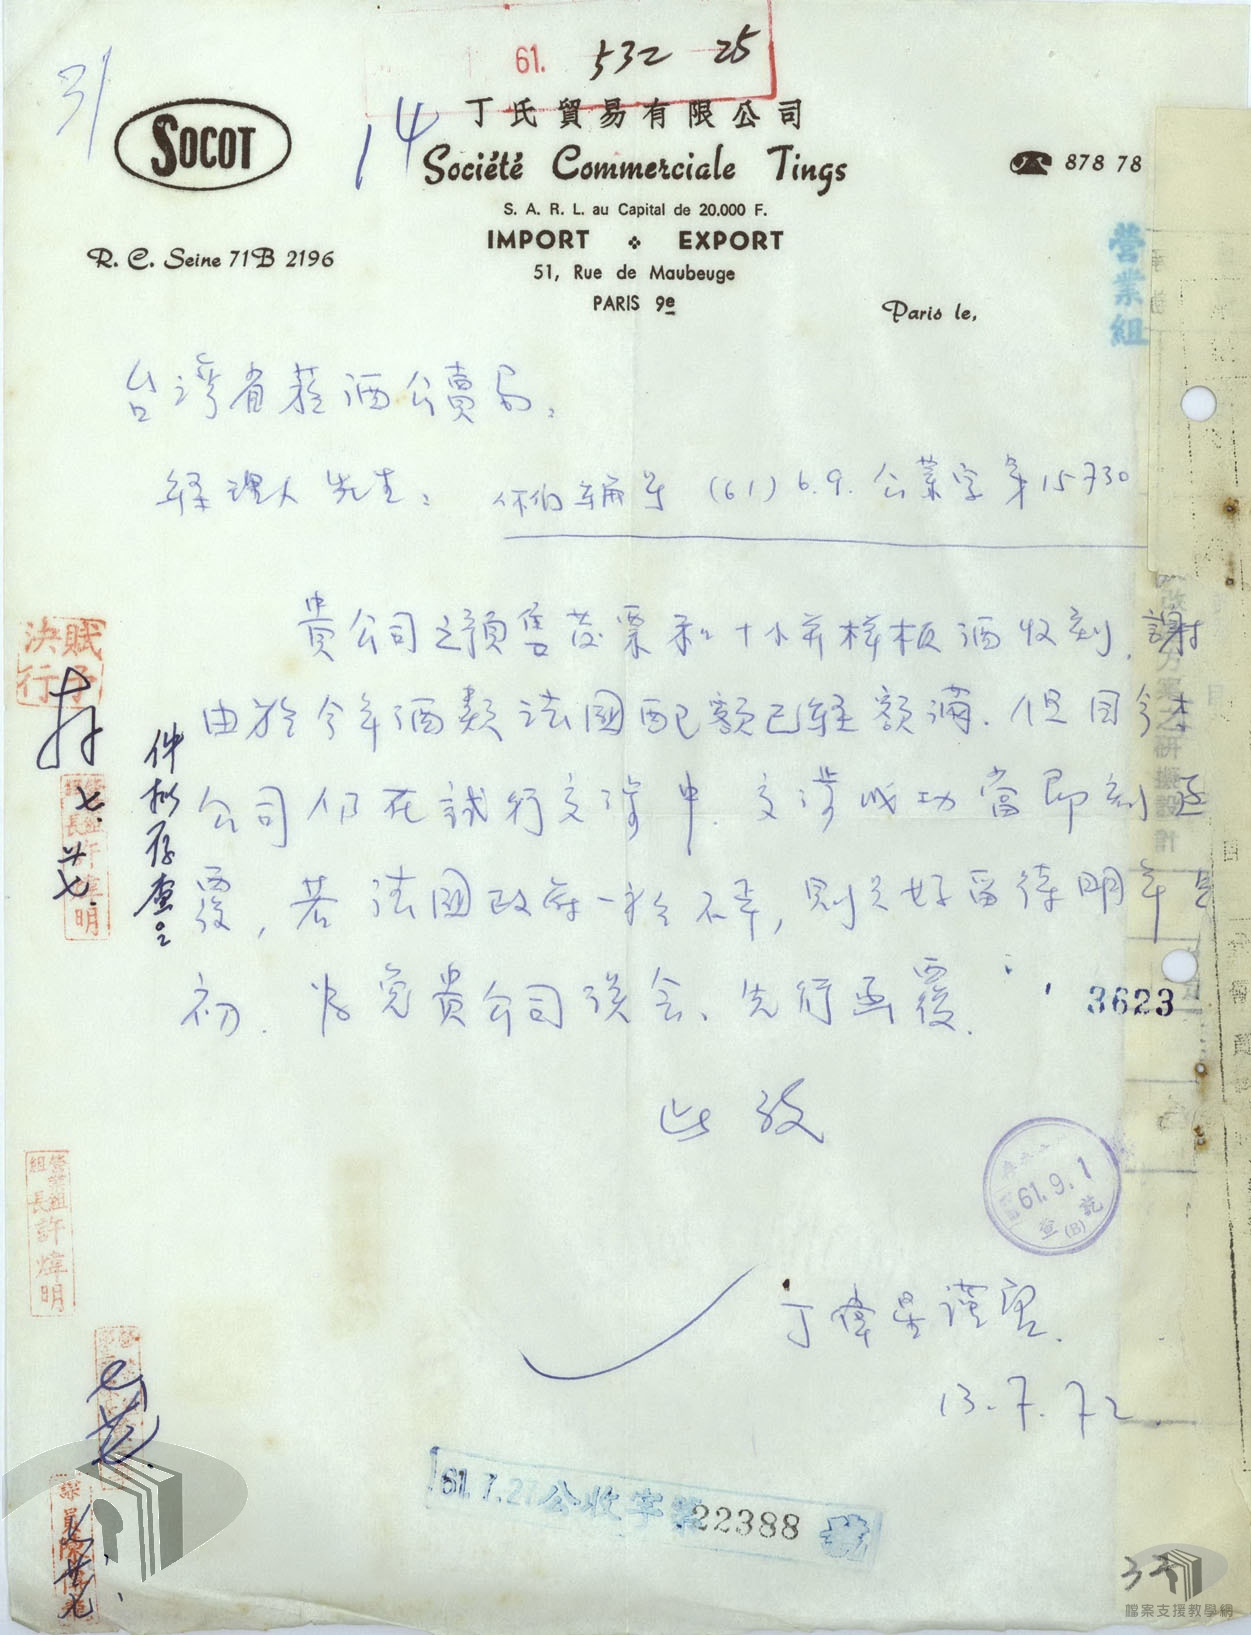 31
61. 532 25
14
SOCOT
丁氏貿易有限公司
Société Commerciale Tings
S. A. R. L. au Capital de 20.000 F.
IMPORT EXPORT
51, Rue de Maubeuge
PARIS 9e
878 78
R. C. Seine 71B 2196
Paris le,
營業組
台湾省菸酒公賣局：
経理人先生： 你们編号 (61) 6.9. 公業字第15730
貴公司之預售發票和十小并样板酒收到，謝
由於今年酒類法國配額已経額滿．但目今本
公司仍在試行交涉中．交涉成功當即刻函
覆，若法國政府一於不準，則只好留待明年
初．为免貴公司误会、先行函覆．
3623
此致
61.9.1
查訖
(B)
丁偉星謹啟．
13.7.72.
賦予
決行
存
七.
件擬存查
營業組
組長許煒明
61.7.27公收字第22388號
檔案支援教學網